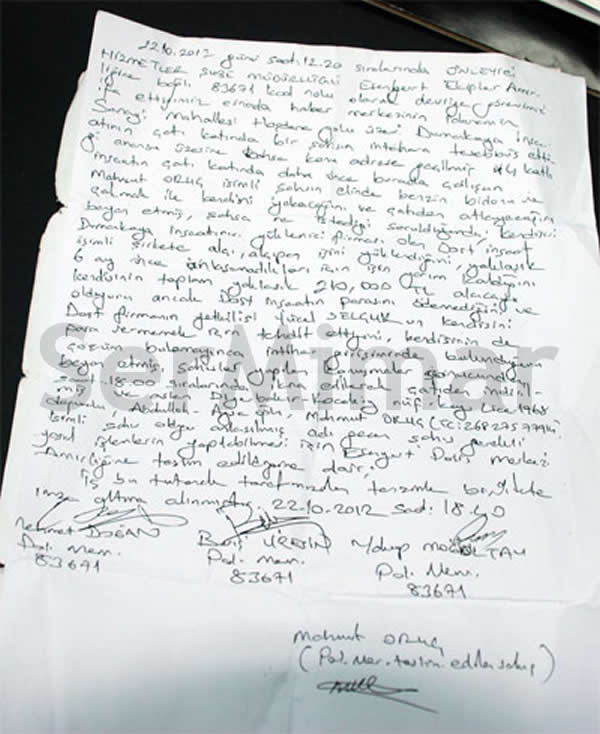 22.10.2012 günü saat: 12.20 sıralarında ÖNLEYİCİ
HİZMETLER ŞUBE MÜDÜRLÜĞÜ Esenyurt Ekipler Amir
liğine bağlı 83671 kod nolu olarak devriye görevimizi
ifa ettiğimiz esnada haber merkezinin
Sanayi Mahallesi yolu üzeri Dumankaya inşa
atının çatı katında bir şahsın intihara teşebbüs etti
ği anonsu üzerine bahse konu adrese geçilmiş katlı
inşaatın çatı katında daha önce burada çalışan
Mahmut ORUÇ isimli şahsın elinde benzin bidonu ve
çakmak ile kendini yakacağını ve çatıdan atlayacağını
beyan etmiş, şahsa ne istediği sorulduğunda, kendisinin
Dumankaya inşaatının yüklenici firması olan Dost inşaat
isimli şirkete alçı, alçıpan işini yüklendiğini, yaklaşık
6 ay önce anlaşamadıkları için işin yarım kaldığını
kendisinin toplam yaklaşık 210,000 TL alacağı
olduğunu ancak Dost inşaatın parasını ödemediğini ve
Dost firmanın yetkilisi Yücel SELÇUK un kendisini
para vermemek için tehdit ettiğini, kendisinin de
çözüm bulamayınca intihar girişiminde bulunduğunu
beyan etmiş, şahısla yapılan konuşmalar sonucunda
saat: 18.00 sıralarında ikna edilerek çatıdan indiril-
miş ve aslen Diyarbakır-Kocaköy nüf. kay. Lice 1968
doğumlu, Abdullah- oğlu, Mahmut ORUÇ (TC:
isimli şahıs olduğu anlaşılmış adı geçen şahıs gerekli
yasal işlemlerin yapılabilmesi için Esenyurt Polis merkezi
Amirliğine teslim edildiğine dair;
İş bu tutanak tarafımızdan tanzimle birlikte
imza altına alınmıştır. 22.10.2012 Saat: 18.40
Mehmet DOĞAN Barış Yakup
Pol. Mem. Pol. Mem. Pol. Mem.
83671 83671 83671
Mahmut ORUÇ
(Pol. Mer. teslim edilen şahıs)
SerMimar